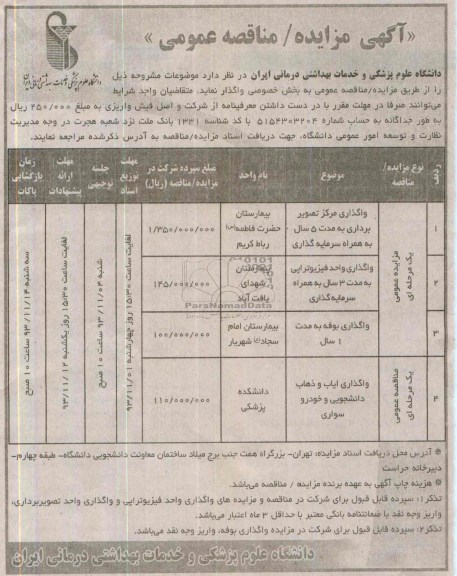 «آگهی مزایده/ مناقصه عمومی»
دانشگاه علوم پزشکی و خدمات بهداشتی درمانی ایران
دانشگاه علوم پزشکی و خدمات بهداشتی درمانی ایران در نظر دارد موضوعات مشروحه ذیل
را از طریق مزایده/مناقصه عمومی به بخش خصوصی واگذار نماید. متقاضیان واجد شرایط
می‌توانند صرفا در مهلت مقرر با در دست داشتن معرفینامه از شرکت و اصل فیش واریزی به مبلغ ۲۵۰/۰۰۰ ریال
به طور جداگانه به حساب شماره ۵۱۵۴۳۰۳۲۰۴ با کد شناسه ۱۳۳۱ بانک ملت نزد شعبه هجرت در وجه مدیریت
نظارت و توسعه امور عمومی دانشگاه، جهت دریافت اسناد مزایده/مناقصه به آدرس ذکرشده مراجعه نمایند.
ردیف
نوع مزایده/ مناقصه
موضوع
نام واحد
مبلغ سپرده شرکت در مزایده/مناقصه (ریال)
مهلت توزیع اسناد
جلسه توجیهی
مهلت ارائه پیشنهادات
زمان بازگشایی پاکات
۱
یک مرحله ای
مزایده عمومی
واگذاری مرکز تصویر
برداری به مدت ۵ سال
به همراه سرمایه گذاری
بیمارستان
حضرت فاطمه(س)
رباط کریم
۱/۳۵۰/۰۰۰/۰۰۰
لغایت ساعت ۱۵:۳۰ روز چهارشنبه ۹۳/۱۱/۰۱
شنبه ۹۳/۱۱/۰۴ ساعت ۱۰ صبح
لغایت ساعت ۱۵:۳۰ روز یکشنبه ۹۳/۱۱/۱۲
سه شنبه ۹۳/۱۱/۱۴ ساعت ۱۰ صبح
۲
واگذاری واحد فیزیوتراپی
به مدت ۳ سال به همراه
سرمایه‌گذاری
بیمارستان
شهدای
یافت آباد
۱۴۵/۰۰۰/۰۰۰
۳
واگذاری بوفه به مدت
۱ سال
بیمارستان امام
سجاد(ع) شهریار
۱۰۰/۰۰۰/۰۰۰
۴
یک مرحله ای
مناقصه عمومی
واگذاری ایاب و ذهاب
دانشجویی و خودرو
سواری
دانشکده
پزشکی
۱۱۰/۰۰۰/۰۰۰
ParsNamadData
※ آدرس محل دریافت اسناد مزایده: تهران- بزرگراه همت جنب برج میلاد ساختمان معاونت دانشجویی دانشگاه- طبقه چهارم-
دبیرخانه حراست
※ هزینه چاپ آگهی به عهده برنده مزایده / مناقصه می‌باشد.
تذکر۱: سپرده قابل قبول برای شرکت در مناقصه و مزایده های واگذاری واحد فیزیوتراپی و واگذاری واحد تصویربرداری،
واریز وجه نقد یا ضمانتنامه بانکی معتبر با حداقل ۳ ماه اعتبار می‌باشد.
تذکر۲: سپرده قابل قبول برای شرکت در مزایده واگذاری بوفه، واریز وجه نقد می‌باشد.
دانشگاه علوم پزشکی و خدمات بهداشتی درمانی ایران